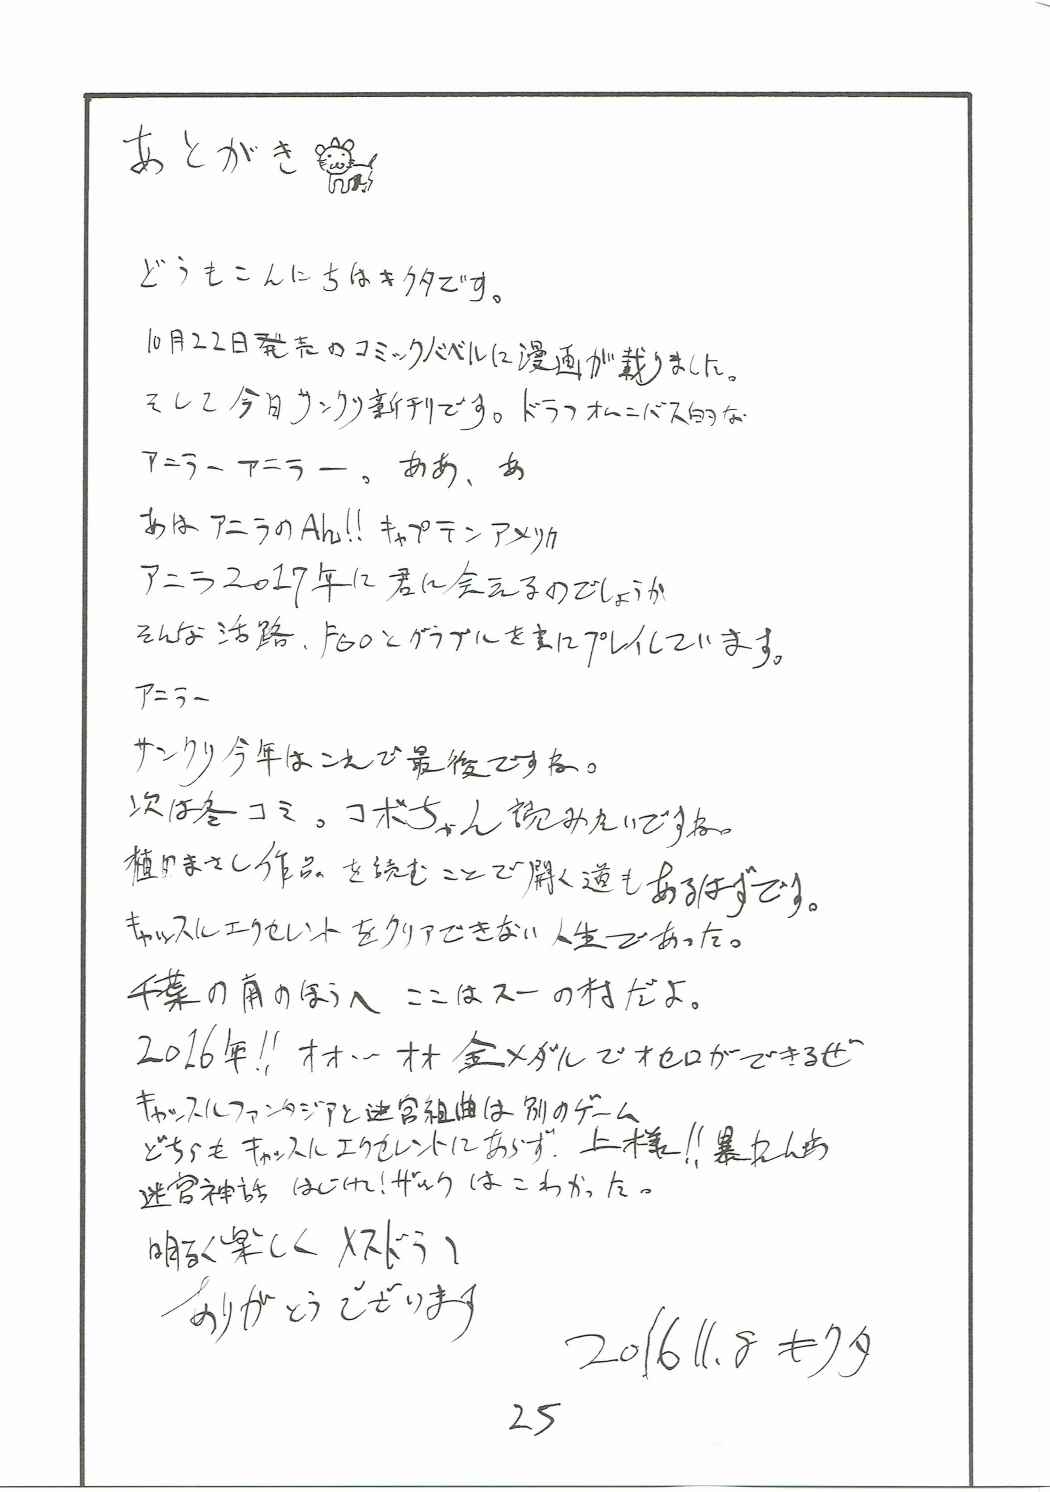 あとがき
どうもこんにちはキクタです。
10月22日発売のコミックバベルに漫画が載りました。
そして今日サンクリ新刊です。ドラフオムニバス的な
アニラーアニラー。ああ、あ
あはアニラのAh!!キャプテンアメリカ
アニラ2017年に君に会えるのでしょうか
そんな活路、FGOとグラブルを主にプレイしています。
アニラー
サンクリ今年はこれで最後ですね。
次は冬コミ。コボちゃん読みたいですね。
植田まさし作品を読むことで開く道もあるはずです。
キャッスルエクセレントをクリアできない人生であった。
千葉の南のほうへ ここはスーの村だよ。
2016年!!オオ…オオ金メダルでオセロができるぜ
キャッスルファンタジアと迷宮組曲は別のゲーム
どちらもキャッスルエクセレントにあらず。上様!!暴れんぼ
迷宮神話 はじけ!ザックはこわかった。
明るく楽しくメスドラヘ
ありがとうございます
2016 11.8 キクタ
25